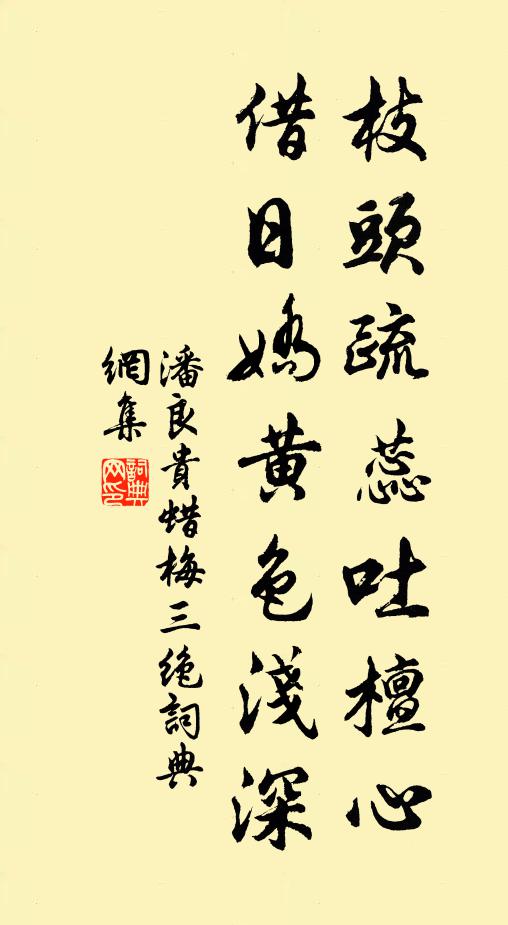 枝頭疏蕊吐檀心
借日嬌黃色淺深
潘良貴蜡梅三絶詞典
網集
詞典網印